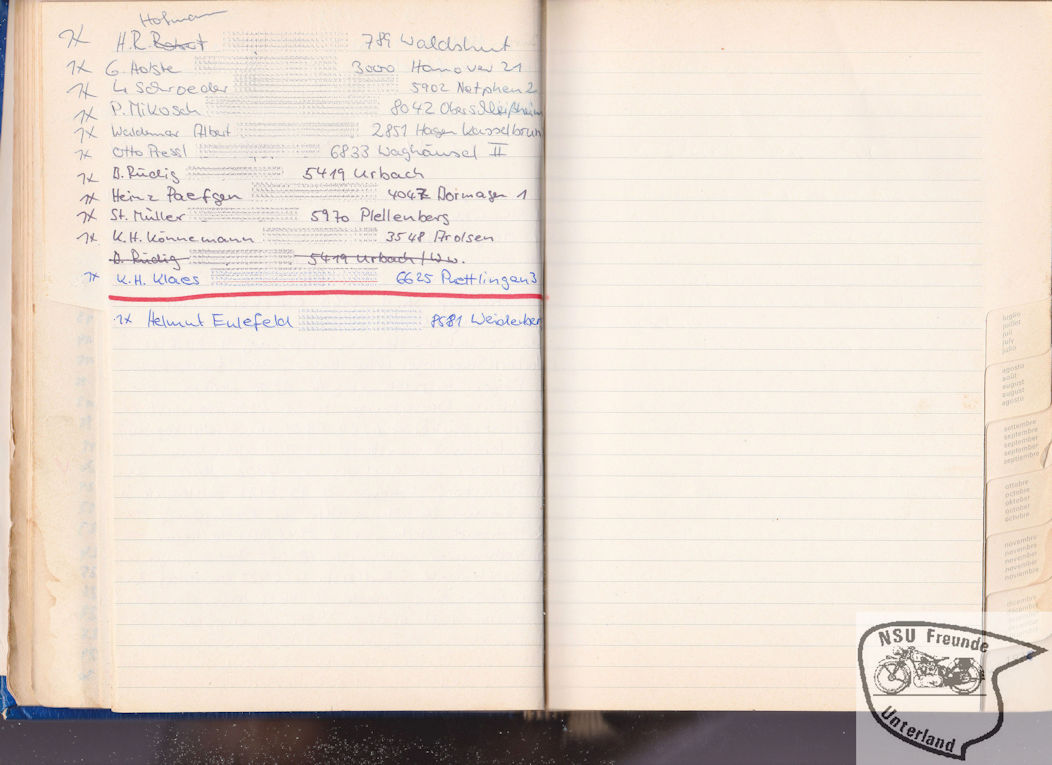 Hofmann
1x H.R. Robert 789 Waldshut
1x G. Holste 3000 Hannover 21
1x Schroeder 5902 Netphen 2
1x P. Mikosch 8042 Oberschleißheim
1x Waldemar Albert 2851 Hagen
1x Otto Pressl 6833 Waghäusel II
1x D. Rüdig 5419 Urbach
1x Heinz Paefgen 4047 Dormagen 1
1x St. Müller 5970 Plellenberg
1x K.H. Könnemann 3548 Arolsen
D. Rüdig 5419 Urbach/Ww.
1x K.H. Klaes 6625 Püttlingen 3
1x Helmut Eulefeld 8581 Weidenber
luglio
juillet
juli
july
julio
agosto
août
august
august
agosto
settembre
septembre
september
september
septiembre
ottobre
octobre
oktober
october
octubre
novembre
novembre
november
november
noviembre
dicembre
NSU Freunde
Unterland